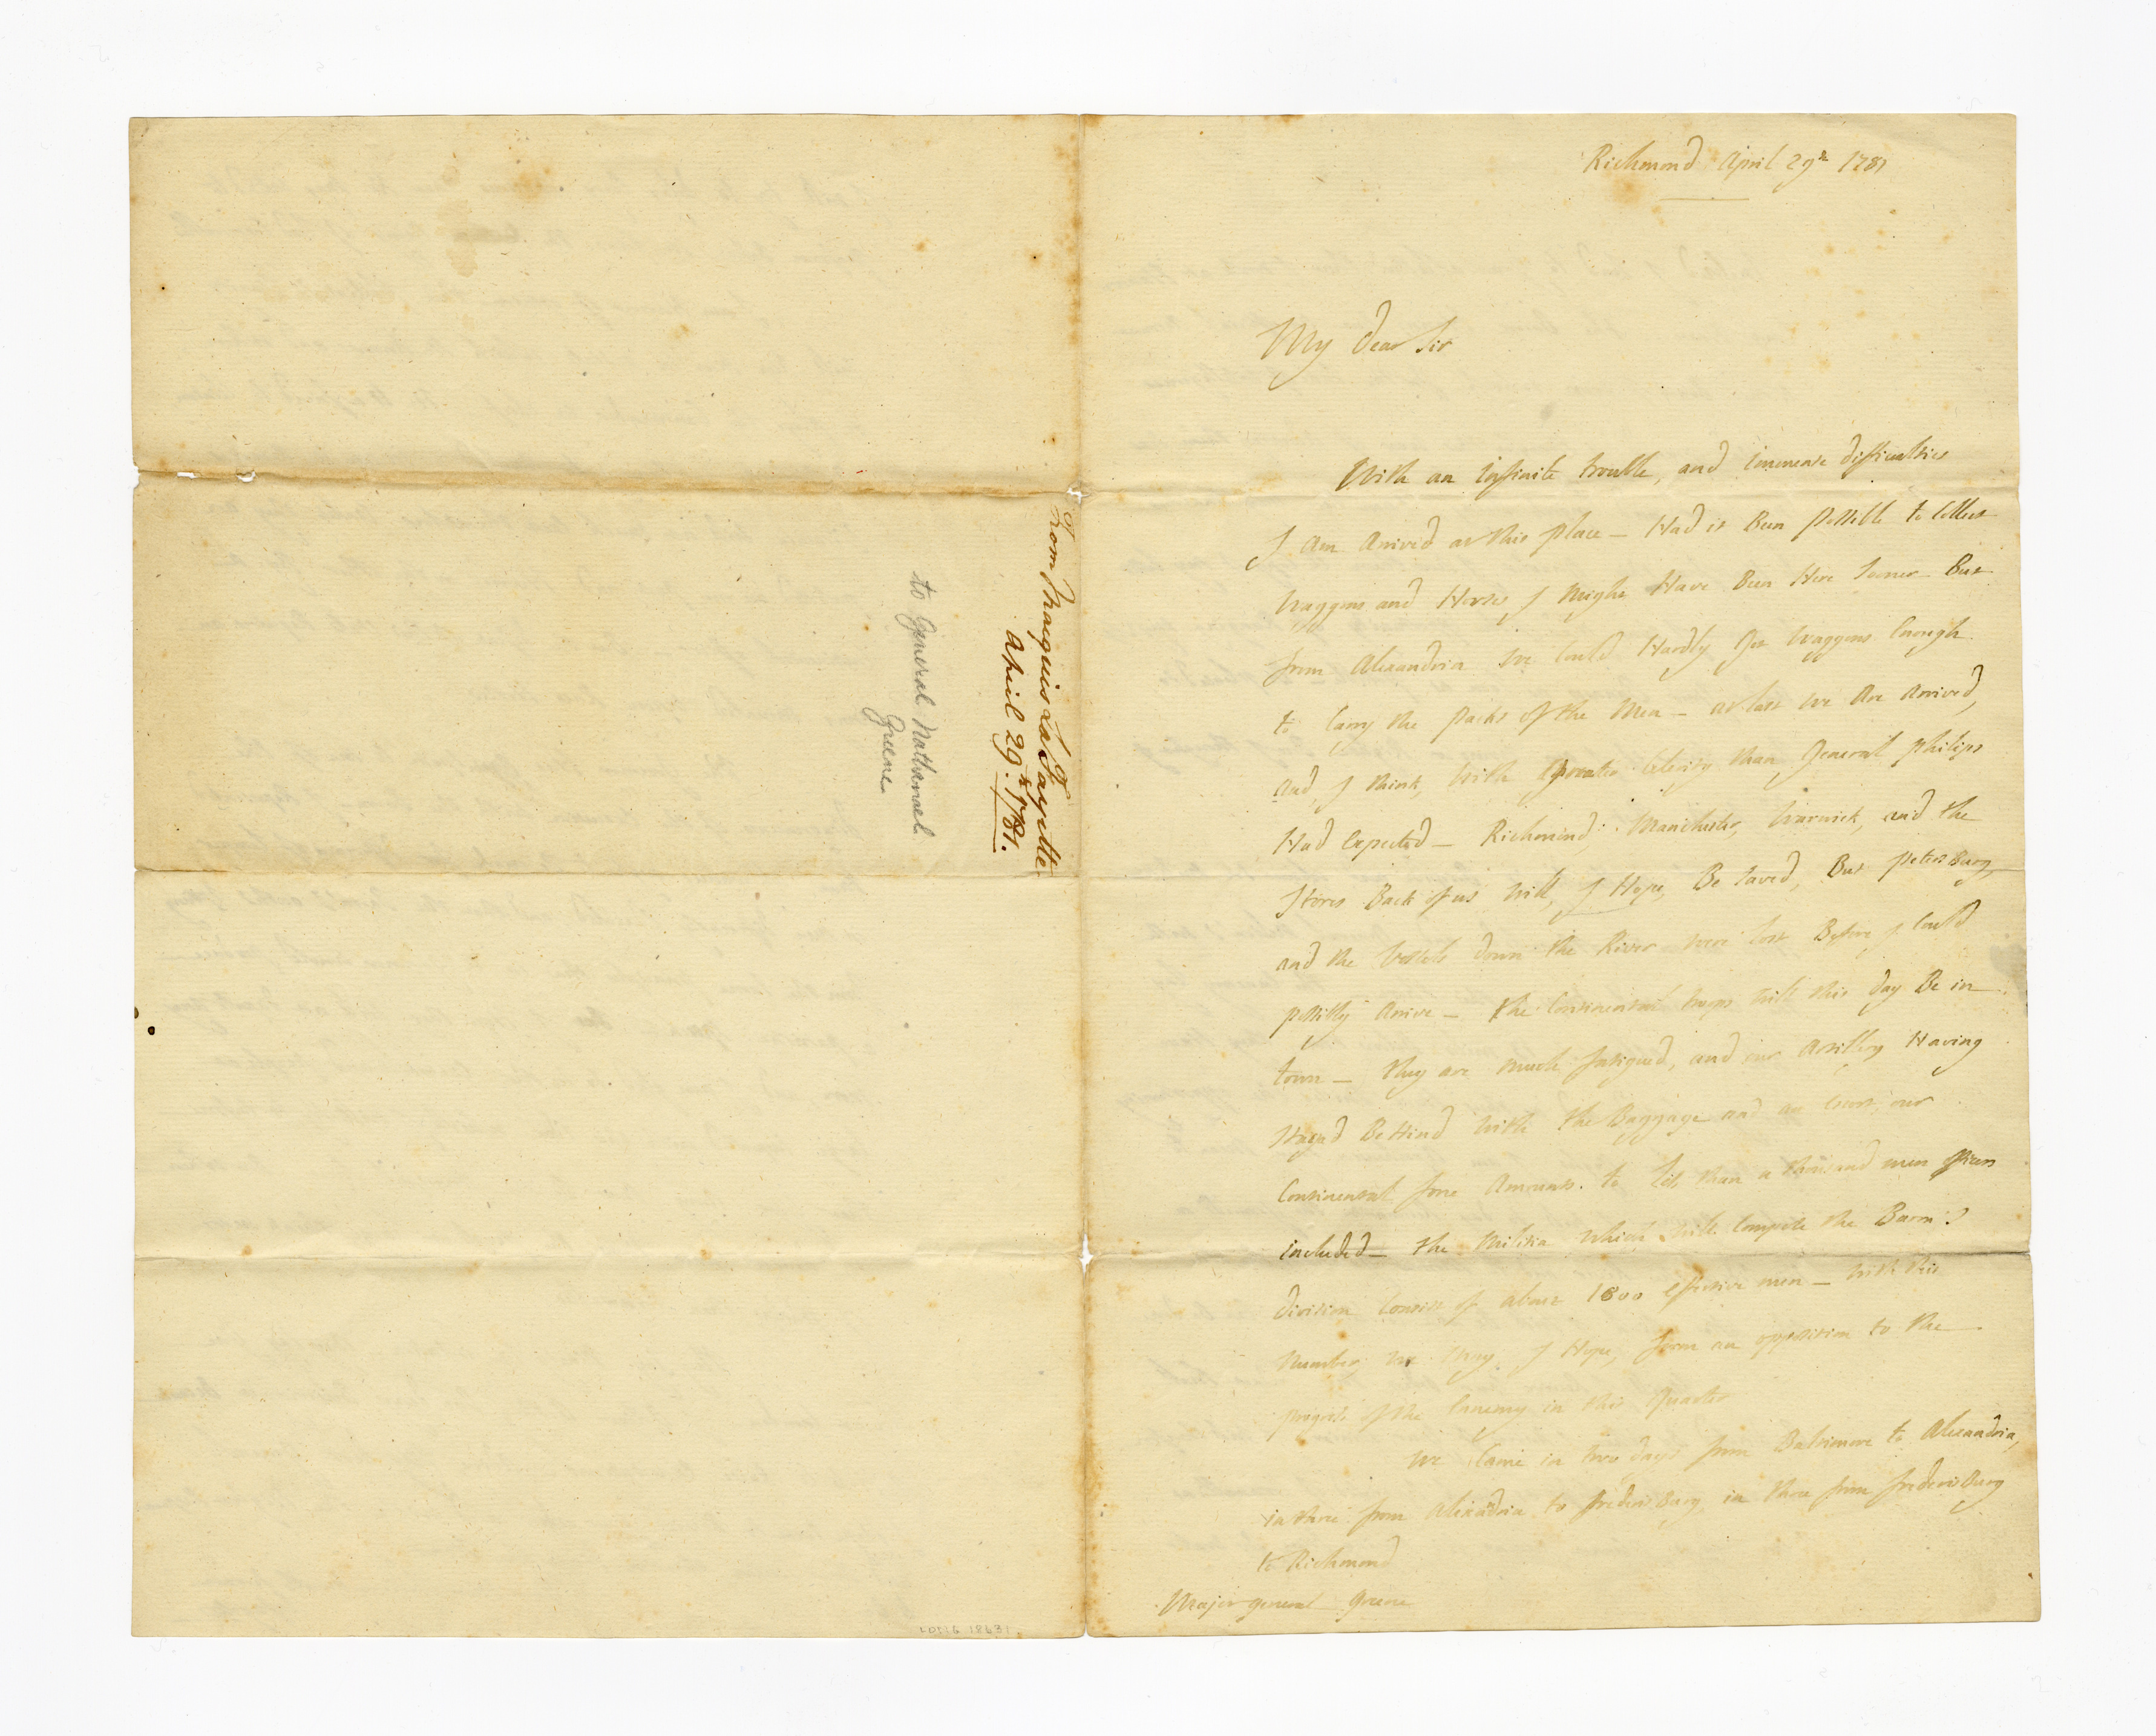 From Marquis La Fayette
April 29th 1781.
to General Nathanael
Greene
Richmond April 29th 1781
My dear Sir
With an infinite trouble, and immense difficulties
I am Arrived at this place – Had it Been possible to Collect
Waggons and Horses I might Have Been Here Sooner But
from Alexandria we Could Hardly Get Waggons Enough
to Carry the packs of the Men – at last we Are Arrived,
And, I think, With Greater Celerity than General philips
Had Expected – Richmond, Manchester, Warwick, and the
Stores Back of us will, I Hope, Be Saved, But petersBurg,
and the Vessels down the River were lost Before I Could
possibly Arrive – the Continental troops will this day Be in
town – they are much fatigued, and our Artillery Having
Stayed BeHind with the Baggage and an Escort our
Continental force Amounts to less than a thousand men officers
included – the Militia which will Compose the Baron's
division Consist of about 1800 effective men – with this
Number we May, I Hope, form an opposition to the
progress of the Ennemy in this Quarter
We Came in two days from Baltimore to Alexandria,
in three from Alexandria to frederisBurg, in three from frederisBurg
to Richmond
Major general Greene